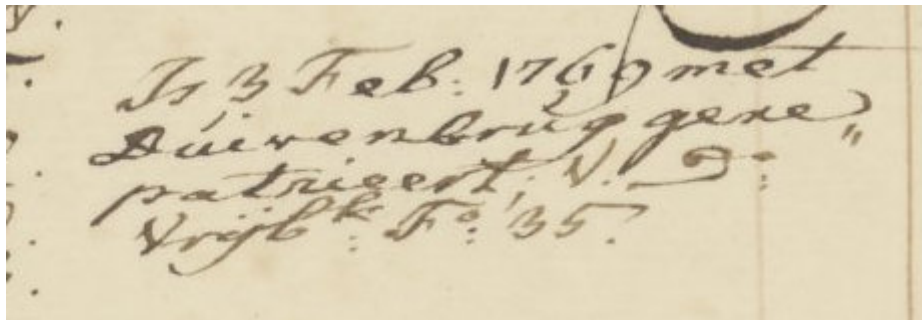 Is 3 Feb: 1769 met
Duivenbrug gere
patrieert; V. D:o "
Vrijb:k F:o 35.